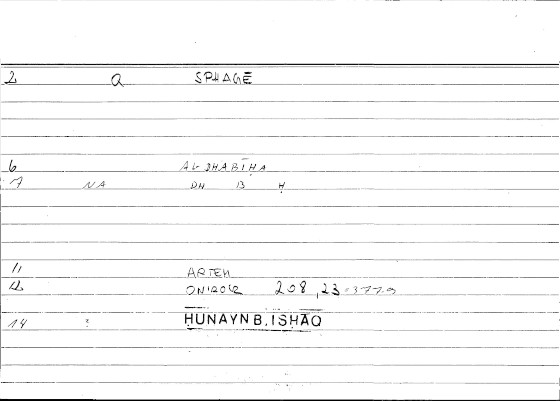 2 Q SPHAGĒ
6 AL-DHABĪḤA
7 NA DH B Ḥ
11 ARTEM
12 ONIROCR 208,23-377.9
14 ? ḤUNAYN B. ISḤĀQ